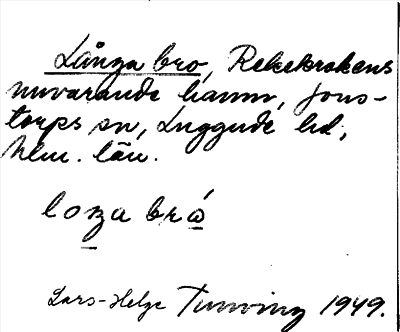 Långa bro, Rekekrokens
nuvarande hamn, Jons-
torps sn, Luggude hd,
Mlm. län.
loŋa brå
Lars-Helge Tunving 1949.